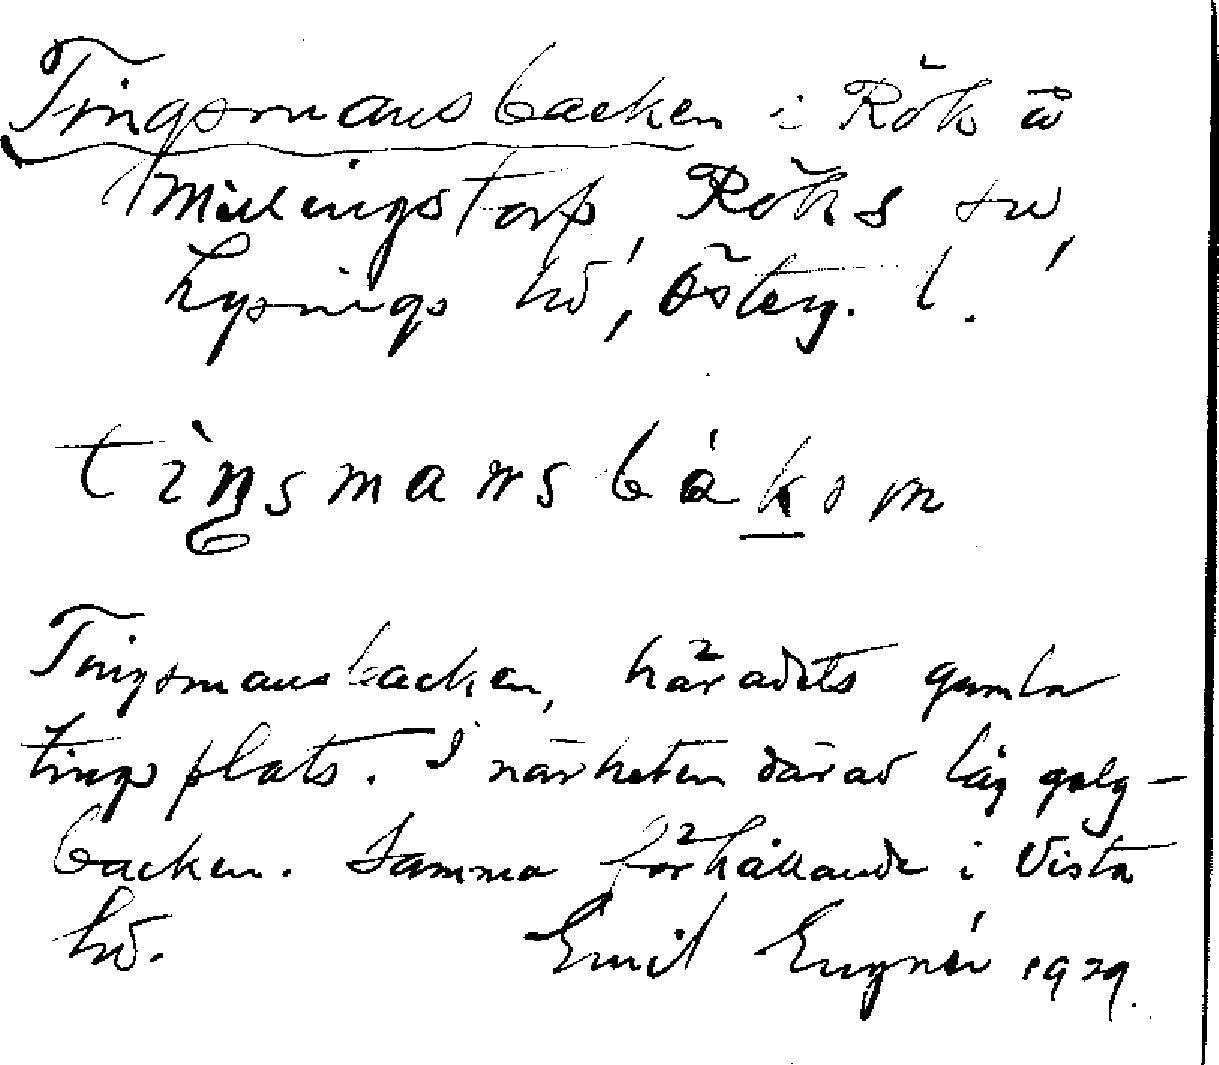 Tingsmansbacken i Rök o
Millingstorp, Röks sn,
Lysings hd, Österg. l.
tiŋsmansbakən
Tingsmansbacken, häradets gamla
tingsplats. I närheten därav låg galg-
backen. Samma förhållande i Vista
hd. Emil Engnér 1929.